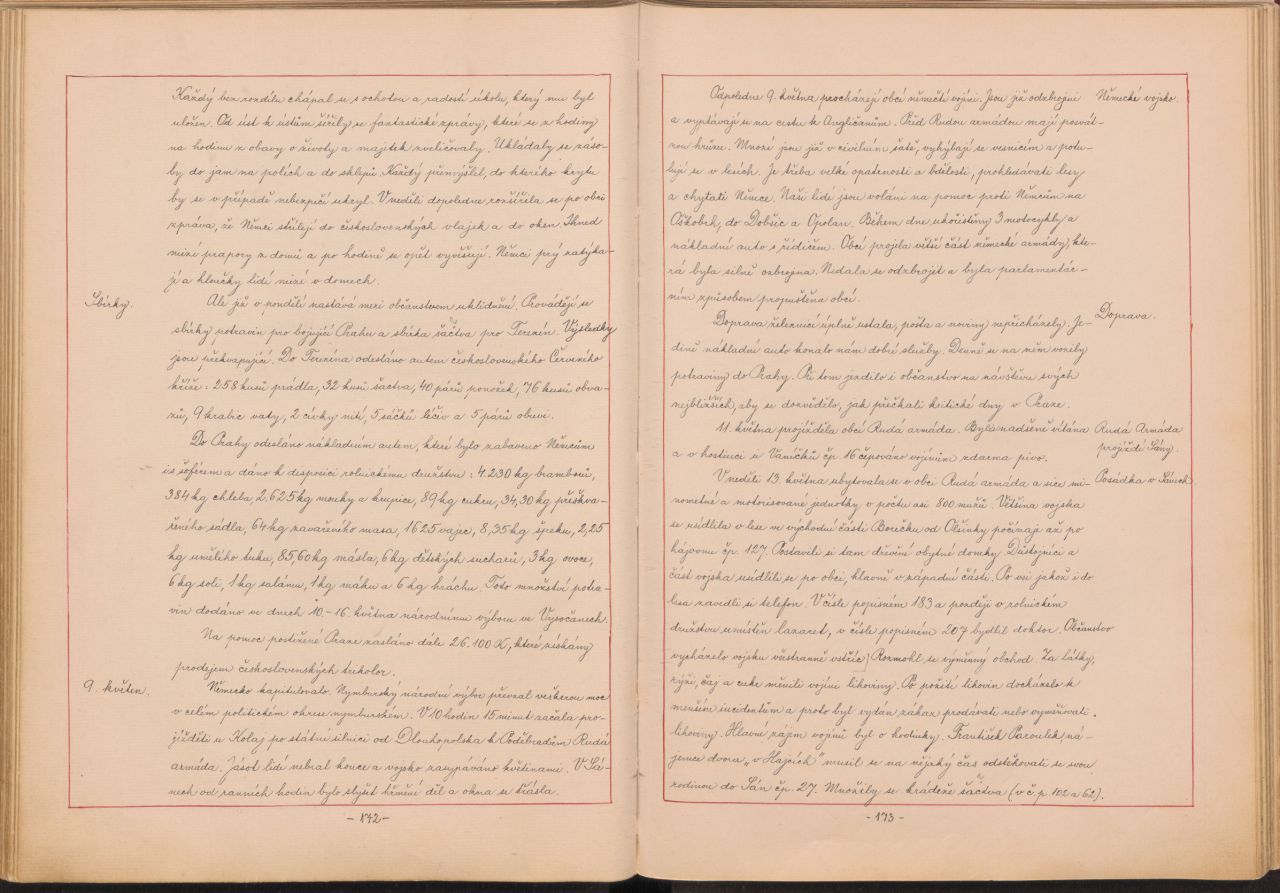 Každý bez rozdílu chápal se s ochotou a radostí úkolu, který mu byl
uložen. Od úst k ústům šířily se fantastické zprávy, které se z hodiny
na hodinu z obavy o životy a majetek zveličovaly. Ukládaly se záso-
by do jam na polích a do sklepů. Každý přemýšlel, do kterého krytu
by se v případě nebezpečí ukryl. V neděli dopoledne rozšířila se po obci
zpráva, že Němci střílejí do československých vlajek a do oken. Ihned
mizí prapory z domů a po hodině se opět vyvěšují. Němci prý zatýka-
jí a hloučky lidí mizí v domech.
Sbírky.
Ale již v pondělí nastává mezi občanstvem uklidnění. Provádějí se
sbírky potravin pro bojující Prahu a sbírka šatstva pro Terezín. Výsledky
jsou překvapující. Do Terezína odesláno autem československého Červeného
kříže: 258 kusů prádla, 32 kusů šatstva, 40 párů ponožek, 76 kusů obva-
zů, 9 krabic vaty, 2 cívky nití, 5 sáčků léčiv a 5 párů obuvi.
Do Prahy odesláno nákladním autem, které bylo zabaveno Němcům
i s šoférem a dáno k disposici rolnickému družstvu: 4.230 kg bramborů,
384 kg chleba 2.625 kg mouky a krupice, 89 kg cukru, 34,30 kg přeškva-
řeného sádla, 64 kg zavařeného masa, 1625 vajec, 8,35 kg špeku, 2,25
kg umělého tuku, 85,60 kg másla, 6 kg dětských sucharů, 3 kg ovoce,
6 kg soli, 1 kg salámu, 1 kg máku a 6 kg hráchu. Toto množství potra-
vin dodáno ve dnech 10.-16. května národnímu výboru ve Vysočanech.
Na pomoc postižené Praze zasláno dále 26.100 K, které získány
prodejem československých trikolor.
9. květen.
Německo kapitulovalo. Nymburský národní výbor převzal veškerou moc
v celém politickém okrese nymburském. V 10 hodin 15 minut začala pro-
jížděti u Kolaj po státní silnici od Dlouhopolska k Poděbradům Rudá
armáda. Jásot lidí nebral konce a vojsko zasypáváno květinami. V Sá-
nech od ranních hodin bylo slyšet hřmění děl a okna se třásla.
- 172 -
Odpoledne 9. května procházejí obcí němečtí vojíni. Jsou již odzbrojeni
Německé vojsko.
a vyptávají se na cestu k Angličanům. Před Rudou armádou mají posvát-
nou hrůzu. Mnozí jsou již v civilním šatě, vyhýbají se vesnicím a potu-
lují se v lesích. Je třeba velké opatrnosti a bdělosti, prohledávati lesy
a chytati Němce. Naši lidé jsou voláni na pomoc proti Němcům na
Oškobrh, do Dobšic a Opolan. Během dne ukořistěny 3 motocykly a
nákladní auto s řidičem. Obcí projela větší část německé armády, kte-
rá byla silně ozbrojena. Nedala se odzbrojit a byla parlamentár-
ním způsobem propuštěna obcí.
Doprava železnicí úplně ustala, pošta a noviny nepřicházely. Je-
Doprava.
dině nákladní auto konalo nám dobré služby. Denně se na něm vozily
potraviny do Prahy. Při tom jezdilo i občanstvo na návštěvu svých
nejbližších, aby se dozvědělo, jak přečkali kritické dny v Praze.
11. května projížděla obcí Rudá armáda. Byla nadšeně vítána
Rudá Armáda
projíždí Sány.
a v hostinci u Vaníčků čp. 16 čepováno vojínům zdarma pivo.
V neděli 13. května ubytovala se v obci Rudá armáda a sice mi-
Posádka v Sánech
nometné a motorisované jednotky, v počtu asi 800 mužů. Většina vojska
se usídlila v lese ve východní části Borečku od Olšinky počínaje až po
hájovnu čp. 127. Postavili si tam dřevěné obytné domky. Důstojníci a
část vojska usídlili se po obci, hlavně v západní části. Po vsi jakož i do
lesa zavedli si telefon. V čísle popisném 183 a později v rolnickém
družstvu umístěn lazaret, v čísle popisném 207 bydlil doktor. Občanstvo
vycházelo vojsku všestranně vstříc. Rozmohl se výměnný obchod. Za látky,
rýži, čaj a cukr měnili vojíni lihoviny. Po požití lihovin docházelo k
menším incidentům a proto byl vydán zákaz prodávati nebo vyměňovati
lihoviny. Hlavní zájem vojínů byl o hodinky. František Paroulek, ná-
jemce dvora „v Hájcích" musil se na nějaký čas odstěhovati se svou
rodinou do Sán čp. 27. Množily se krádeže šatstva (v č. p. 102 a 62).
- 173 -